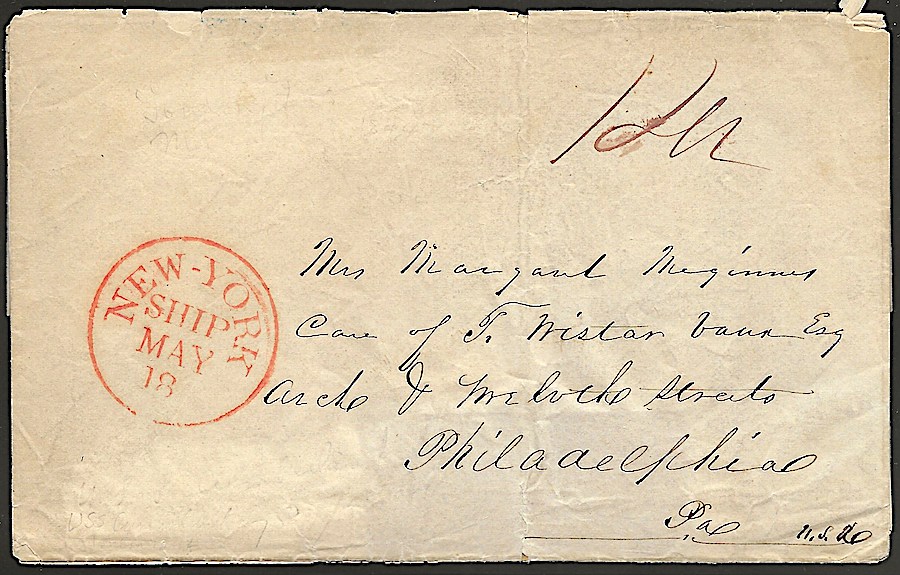 NEW-YORK
SHIP
MAY
18
Mrs Margaret Meginnes
Care of T. Wistar Vaux Esq
Arch & Streets
Philadelphia
Pa U.S.A